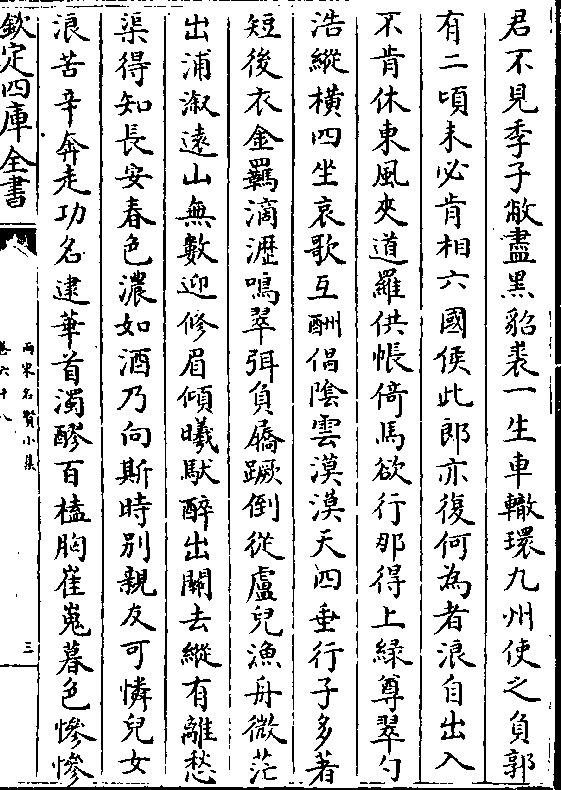 君不見季子敝盡黑貂裘一生車轍環九州使之負郭
有二頃未必肯相六國侯此郎亦復何為者浪自出入
不肯休東風夾道羅供帳倚馬欲行那得上綠尊翠勺
浩縱橫四坐哀歌互酬倡陰雲漠漠天四垂行子多著
短後衣金羈滴瀝鳴翠弭負屩蹶倒從盧兒漁舟微茫
出浦溆遠山無數迎修眉傾曦馱醉出關去縱有離愁
渠得知長安春色濃如酒乃向斯時別親友可憐兒女
浪苦辛奔走功名逮華首濁醪百榼胸崔嵬暮色慘慘
欽定四庫全書
兩宋名賢小集
卷六十八
三